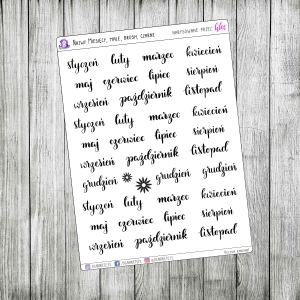 Nazwy Miesięcy, małe, brush, czarne
styczeń luty marzec kwiecień
maj czerwiec lipiec sierpień
wrzesień październik listopad
styczeń luty marzec kwiecień
maj czerwiec lipiec sierpień
wrzesień październik listopad
grudzień grudzień grudzień
styczeń luty marzec kwiecień
maj czerwiec lipiec sierpień
wrzesień październik listopad